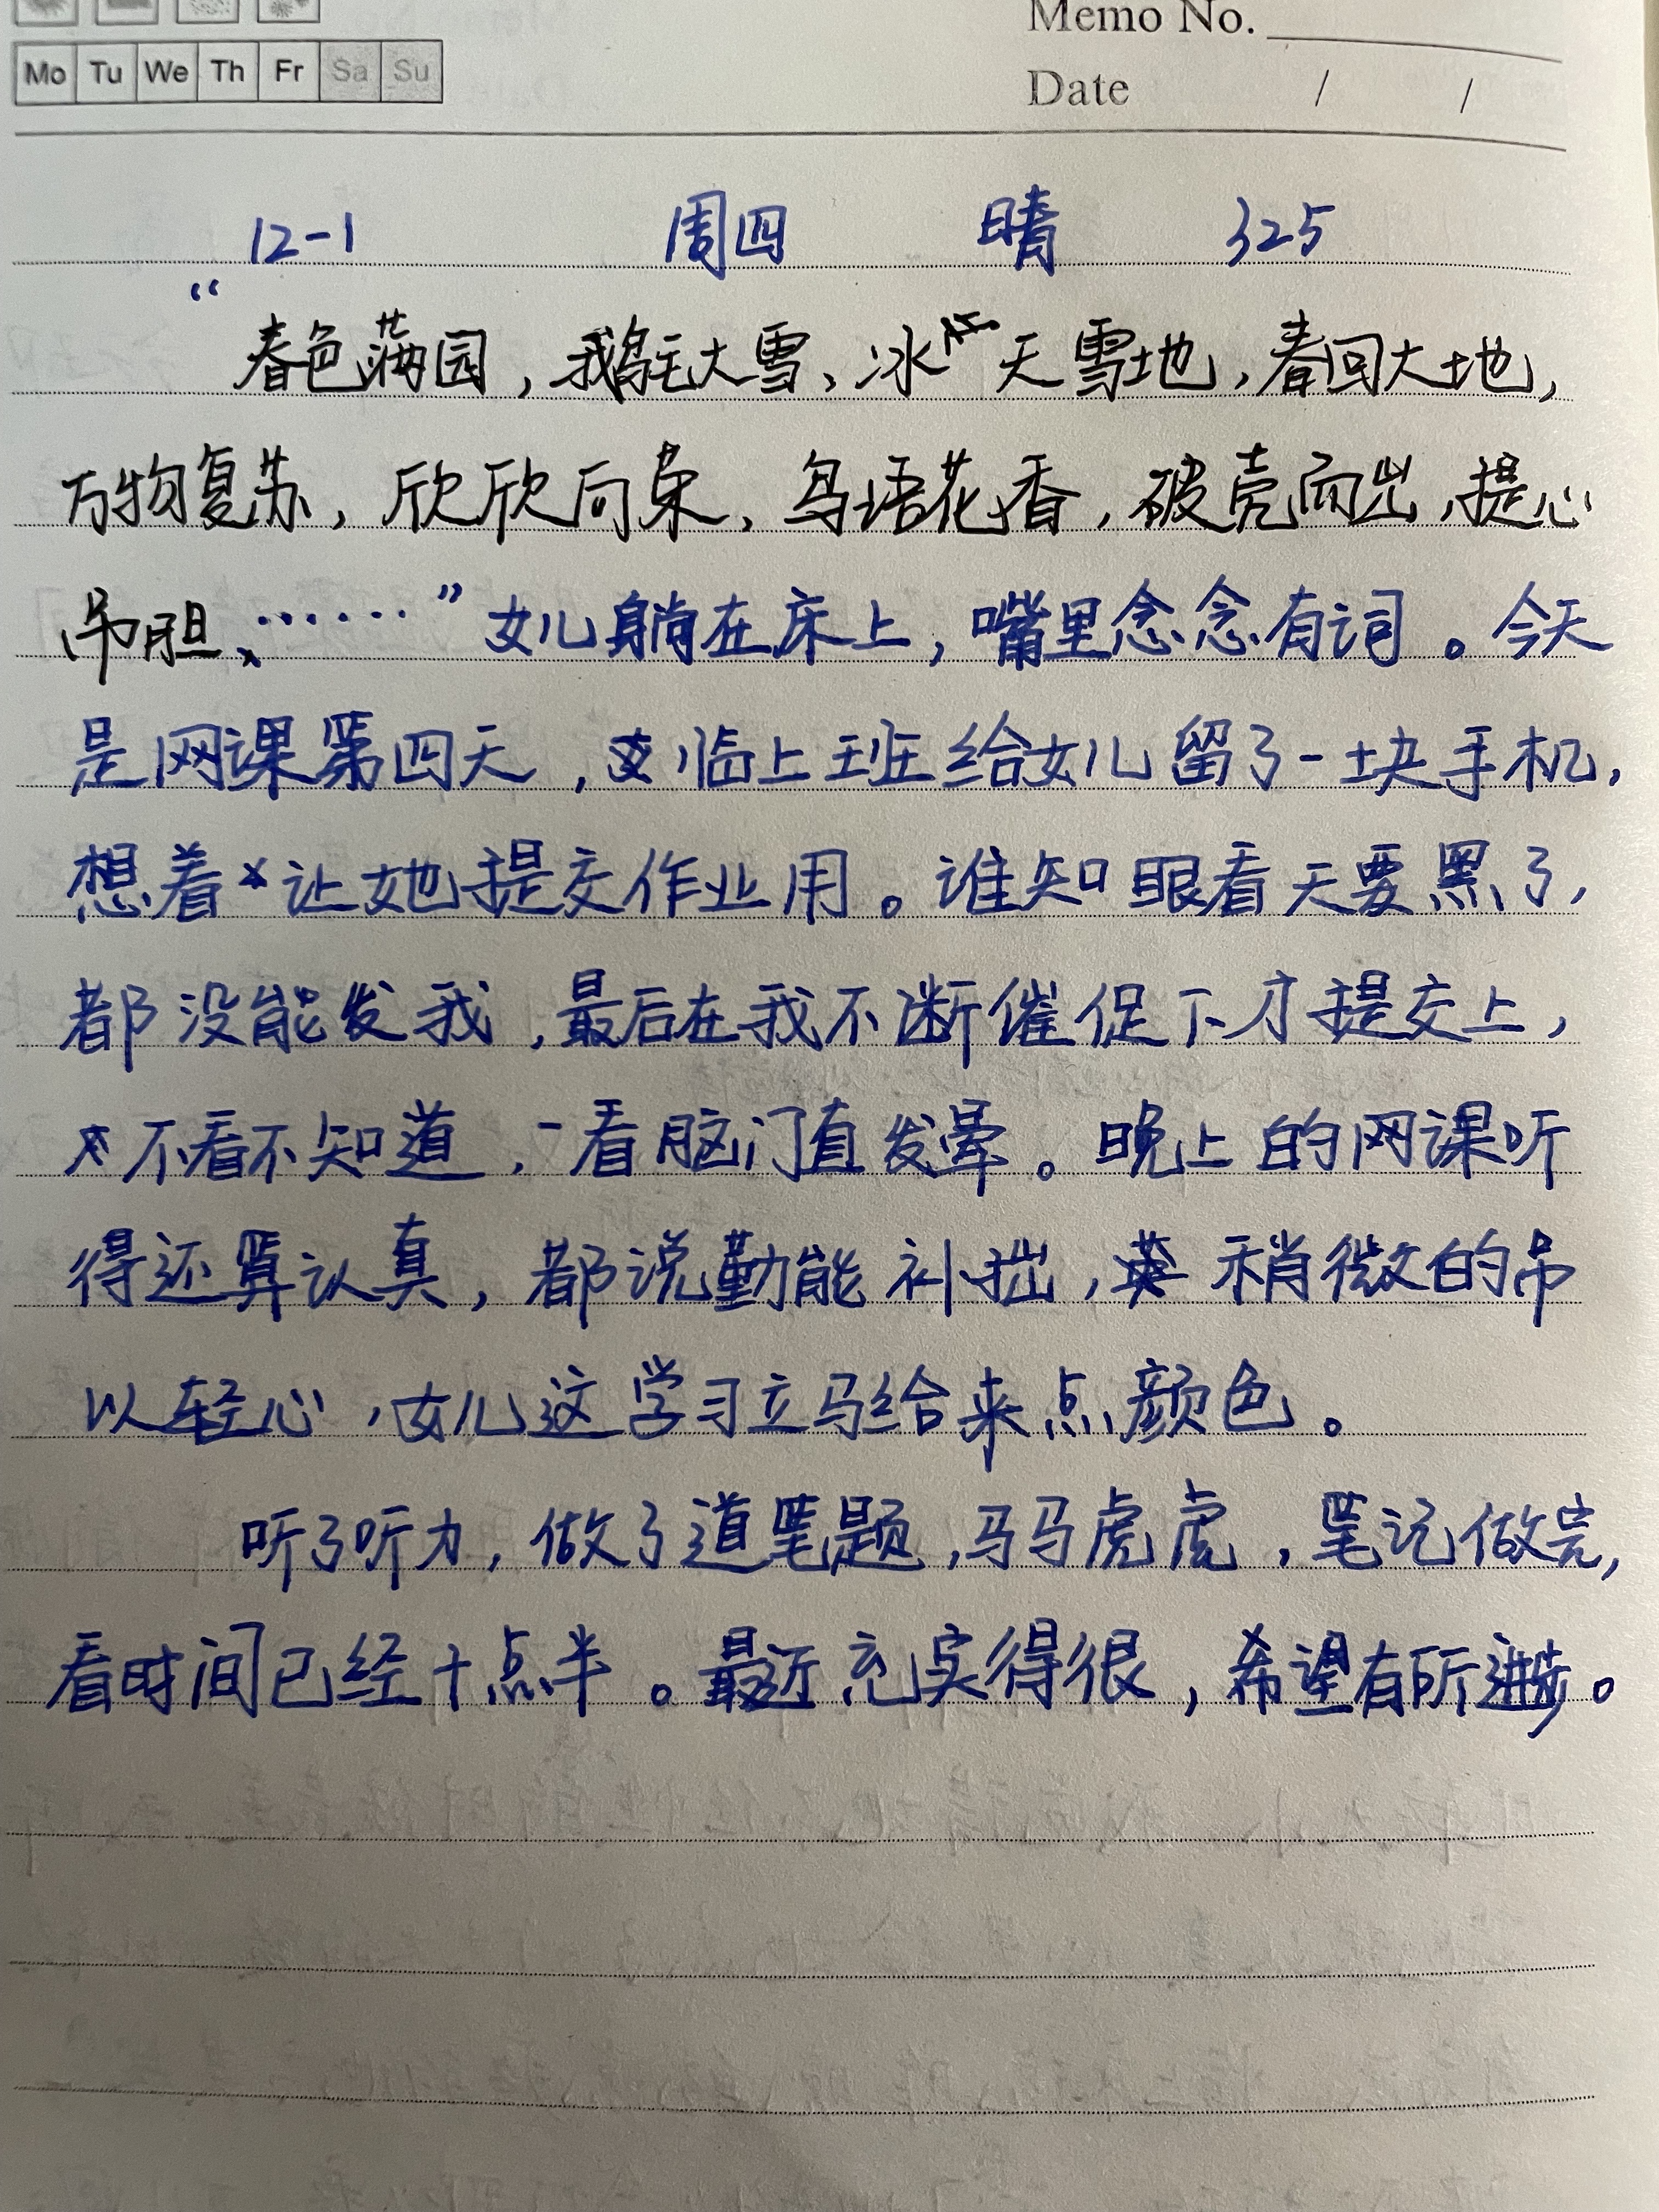 Memo No.
Mo Tu We Th Fr Sa Su
Date / /
12-1 周四 晴 325
“春色满园，鹅毛大雪，冰天雪地，春回大地，
万物复苏，欣欣向荣，鸟语花香，破壳而出，提心
吊胆、……”女儿躺在床上，嘴里念念有词。今天
是网课第四天，临上班给女儿留了一块手机，
想着让她提交作业用。谁知眼看天要黑了，
都没能发我，最后在我不断催促下才提交上，
不看不知道，一看脑门直发晕。晚上的网课听
得还算认真，都说勤能补拙，稍微的吊
以轻心，女儿这学习立马给来点颜色。
听了听力，做了道笔题，马马虎虎，笔记做完，
看时间已经十点半。最近充实得很，希望有所进步。